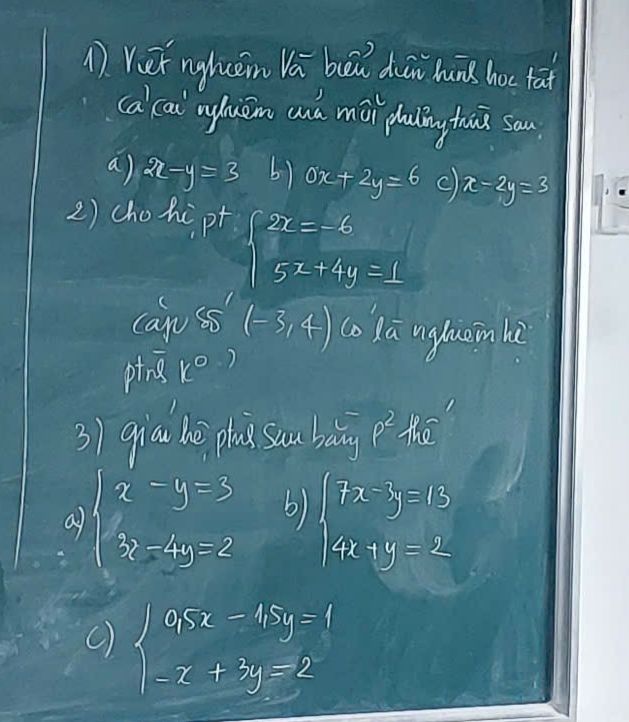 1). Viết nghiệm Và biểu diễn hình học tất
cả các nghiệm của mỗi phương trình sau.
a) 2x-y=3 b) 0x+2y=6 c) x-2y=3
2) Cho hệ pt: { 2x=-6
5x+4y=1
cặp số (-3,4) có là nghiệm hệ
ptrình k⁰?
3) giải hệ ptrình sau bằng p² thế
a) { x - y=3 b) { 7x-3y=13
3x-4y=2 4x+y=2
c) { 0,5x - 1,5y=1
-x + 3y=2